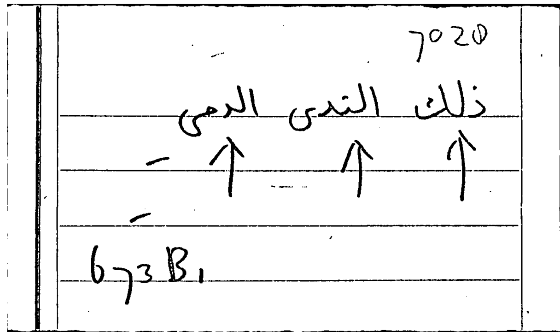 7020
ذلك الندى الدمى
↑ ↑ ↑
673B1